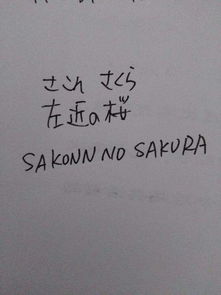 さこん さくら
左近の桜
SAKONN NO SAKURA